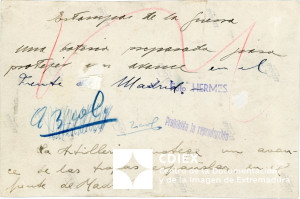 Estampas de la guerra
una batería preparada para
proteger un avance en el
frente de Madrid
Foto HERMES
Prohibida la reproducción
La Artillería protege un avan-
ce de las tropas españolas en el
frente de Madrid
CDIEX
y de la Imagen de Extremadura